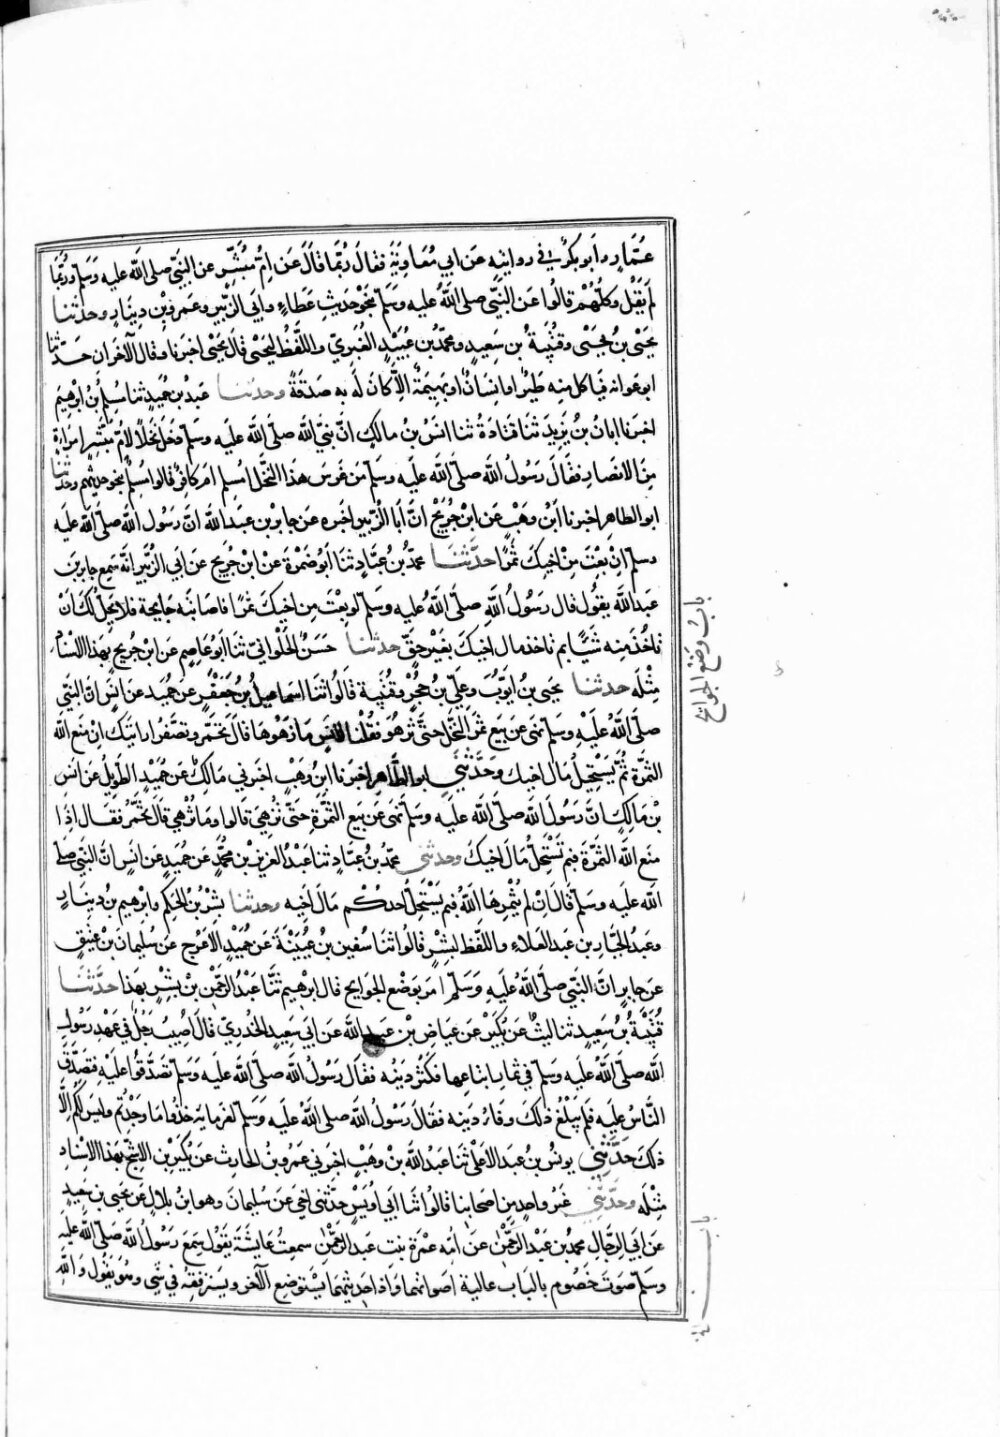 عمار وابو بكر في روايته عن ابي معاوية فقال ربما قال عن ام مبشر عن النبي صلى الله عليه وسلم وربما
لم يقل وكلهم قالوا عن النبي صلى الله عليه وسلم بنحو حديث عطاء وابي الزبير وعمرو بن دينار وحدثنا
يحيى بن يحيى وقتيبة بن سعيد ومحمد بن عبيد الغبري واللفظ ليحيى قال يحيى اخبرنا وقال الآخران حدثنا
ابو عوانه فياكل منه طير او انسان او بهيمة الا كان له به صدقة وحدثنا عبد بن حميد ثنا مسلم بن ابرهيم
اخبرنا ابان بن يزيد ثنا قتادة ثنا انس بن مالك ان نبي الله صلى الله عليه وسلم دخل نخلا لام مبشر امراة
من الانصار فقال رسول الله صلى الله عليه وسلم من غرس هذا النخل امسلم ام كافر قالوا مسلم بنحو حديثهم وحدثنا
ابو الطاهر اخبرنا ابن وهب عن ابن جريج ان ابا الزبير اخبره عن جابر بن عبد الله ان رسول الله صلى الله عليه
وسلم ان بعت من اخيك ثمرا حدثنا محمد بن عباد ثنا ابو ضمرة عن ابن جريج عن ابي الزبير انه سمع جابر بن
عبد الله يقول قال رسول الله صلى الله عليه وسلم لو بعت من اخيك ثمرا فاصابته جايحة فلا يحل لك ان
تاخذ منه شيا بم تاخذ مال اخيك بغير حق حدثنا حسن الحلواني ثنا ابو عاصم عن ابن جريج بهذا الاسناد
مثله حدثنا يحيى بن ايوب وعلي بن حجر وقتيبة قالوا ثنا اسماعيل بن جعفر عن حميد عن انس ان النبي
صلى الله عليه وسلم نهى عن بيع ثمر النخل حتى تزهو فقلنا لانس ما زهوها قال تحمر وتصفر ارايتك ان منع الله
الثمرة ثم يستحل مال اخيك وحدثني ابو الطاهر اخبرنا ابن وهب اخبرني مالك عن حميد الطويل عن انس
بن مالك ان رسول الله صلى الله عليه وسلم نهى عن بيع الثمرة حتى تزهي قالوا وما تزهي قال تحمر فقال اذا
منع الله الثمرة فبم تستحل مال اخيك وحدثني محمد بن عباد ثنا عبد العزيز بن محمد عن حميد عن انس ان النبي صلى
الله عليه وسلم قال ان لم يثمرها الله فبم يستحل احدكم مال اخيه وحدثنا بشر بن الحكم وابرهيم بن دينار
وعبد الجبار بن عبد العلاء واللفظ لبشر قالوا ثنا سفين بن عيينة عن حميد الاعرج عن سليمان بن عتيق
عن جابر ان النبي صلى الله عليه وسلم امر بوضع الجوايح قال ابرهيم ثنا عبد الرحمن بن بشر بهذا حدثنا
قتيبة بن سعيد ثنا ليث عن بكير عن عياض بن عبد الله عن ابي سعيد الخدري قال اصيب رجل في عهد رسول
الله صلى الله عليه وسلم في ثمار ابتاعها فكثر دينه فقال رسول الله صلى الله عليه وسلم تصدقوا عليه فتصدق
الناس عليه فلم يبلغ ذلك وفاء دينه فقال رسول الله صلى الله عليه وسلم لغرمايه خذوا ما وجدتم وليس لكم الا
ذلك حدثني يونس بن عبد الاعلى ثنا عبد الله بن وهب اخبرني عمرو بن الحارث عن بكير بن الاشج بهذا الاسناد
مثله وحدثني غير واحد من اصحابنا قالوا ثنا ابي اويس حدثني اخي عن سليمان وهو ابن بلال عن يحيى بن سعيد
عن ابي الرجال محمد بن عبد الرحمن عن امه عمرة بنت عبد الرحمن سمعت عايشة يقول سمع رسول الله صلى الله عليه
وسلم صوت خصوم بالباب عالية اصواتهما واذا احدهما يستوضع الآخر ويسترفقه في شي وهو يقول والله
باب وضع الجوائح
باب